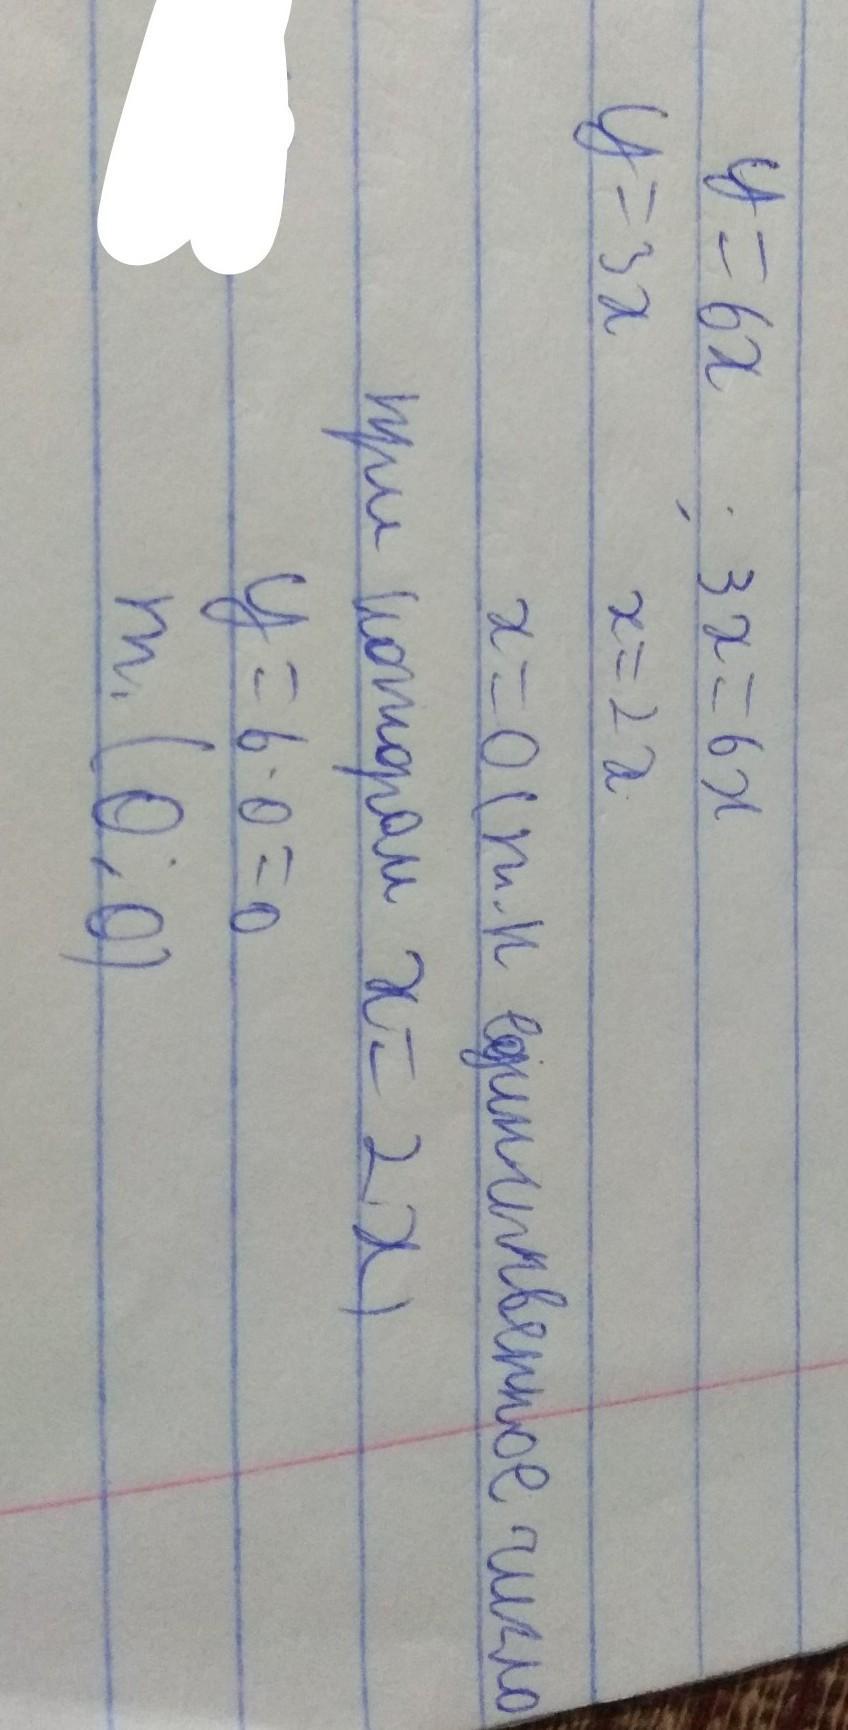 y = 6x ; 3x = 6x
y = 3x x = 2x
x = 0 (т.к единственное число
при котором x = 2x)
y = 6·0 = 0
т. (0; 0)